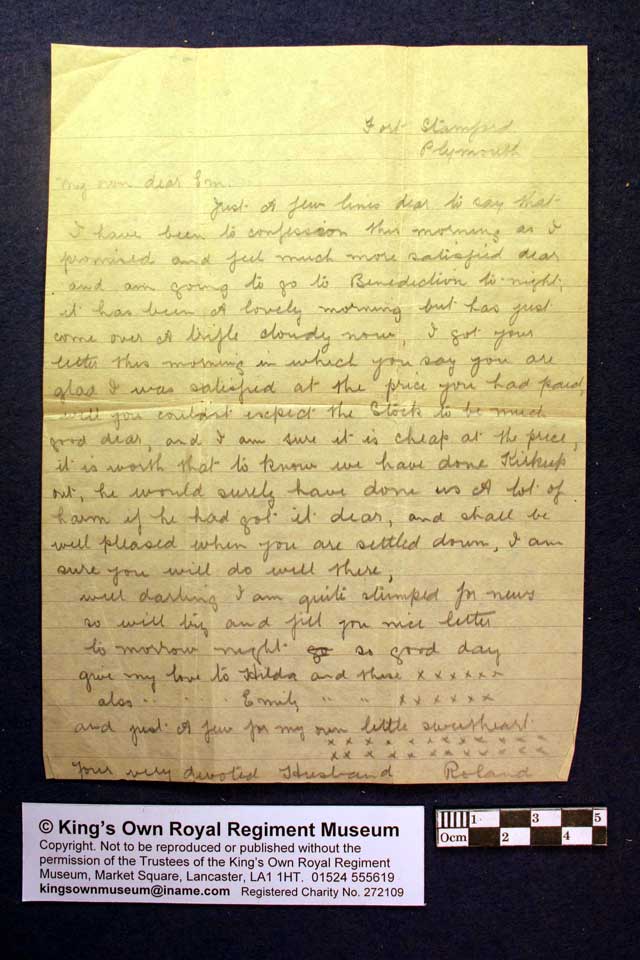 Fort Stamford
Plymouth
My own dear Em.
Just A few lines dear to say that
I have been to confession this morning as I
promised and feel much more satisfied dear
and am going to go to Benediction to-night,
it has been A lovely morning but has just
come over A trifle cloudy now, I got your
letter this morning in which you say you are
glad I was satisfied at the price you had paid,
well you couldnt expect the Stock to be much
good dear, and I am sure it is cheap at the price,
it is worth that to know we have done Kirkup
out, he would surely have done us A lot of
harm if he had got it dear, and shall be
well pleased when you are settled down, I am
sure you will do well there,
well darling I am quite stumped for news
so will try and fill you nice letter
to morrow night so good day
give my love to Hilda and these x x x x x x
also " " " Emily " " x x x x x x
and just A few for my own little sweetheart
x x x x x x x x x x x x
x x x x x x x x x x x x
Your very devoted Husband Roland
© King's Own Royal Regiment Museum
Copyright. Not to be reproduced or published without the
permission of the Trustees of the King's Own Royal Regiment
Museum, Market Square, Lancaster, LA1 1HT. 01524 555619
kingsownmuseum@iname.com Registered Charity No. 272109
1 3 5
0cm 2 4